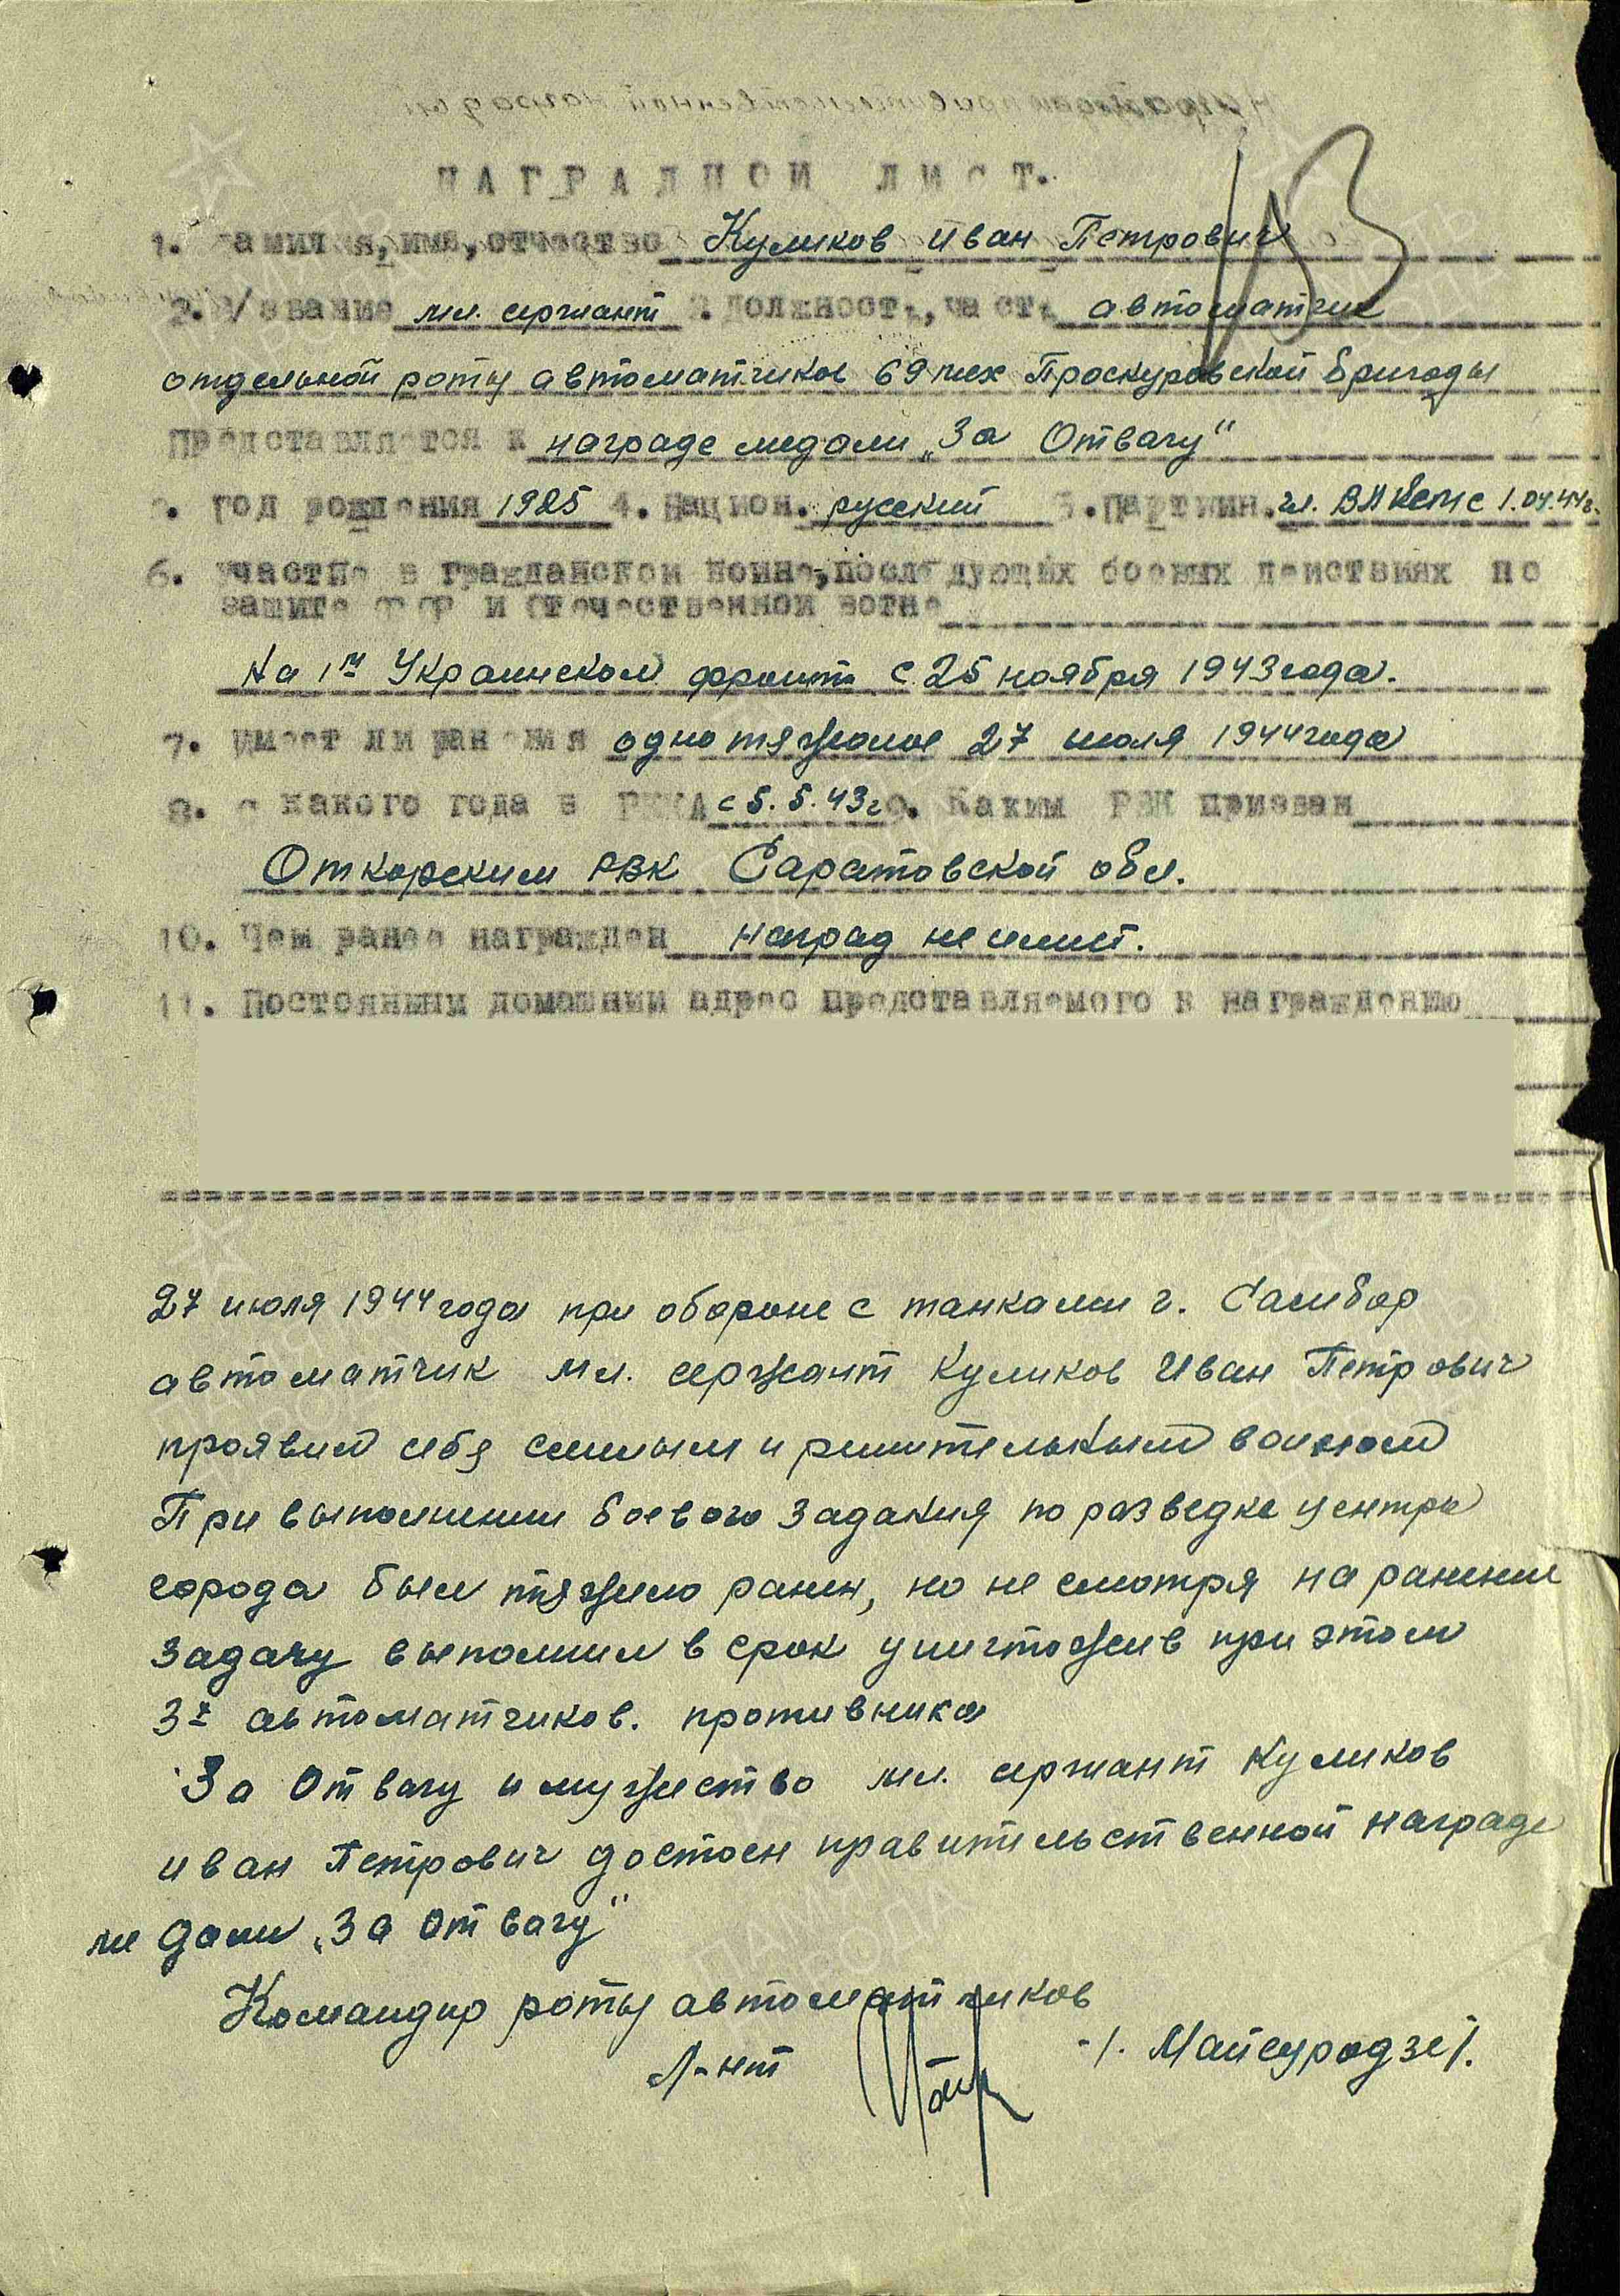 НАГРАДНОЙ ЛИСТ.
1. Фамилия, имя, отчество Куликов Иван Петрович
2. в/звание мл. сержант 3. Должность, часть автоматчик
отдельной роты автоматчиков 69 мех Проскуровской бригады
Представляется к награде медали „За Отвагу"
3. Год рождения 1925 4. Национ. русский 5. Партийн. чл. ВЛКСМ с 1.04.44г.
6. Участие в гражданской войне, последующих боевых действиях по
защите СССР и Отечественной войне
На 1м Украинском фронте с 25 ноября 1943 года.
7. Имеет ли ранения одно тяжолое 27 июля 1944 года
8. С какого года в РККА с 5.5.43г 9. Каким РВК призван
Откарским РВК Саратовской обл.
10. Чем ранее награжден наград не имеет.
11. Постоянный домашний адрес представляемого к награждению
27 июля 1944 года при обороне с танками г. Самбор
автоматчик мл. сержант Куликов Иван Петрович
проявил себя смелым и решительным воином
При выполнении боевого задания по разведке центра
города был тяжело ранен, но не смотря на ранение
задачу выполнил в срок уничтожив при этом
3х автоматчиков. противника
За Отвагу и мужество мл. сержант Куликов
Иван Петрович достоен правительственной награде
медали „За Отвагу"
Командир роты автоматчиков
Л-нт /. Майсурадзе/.